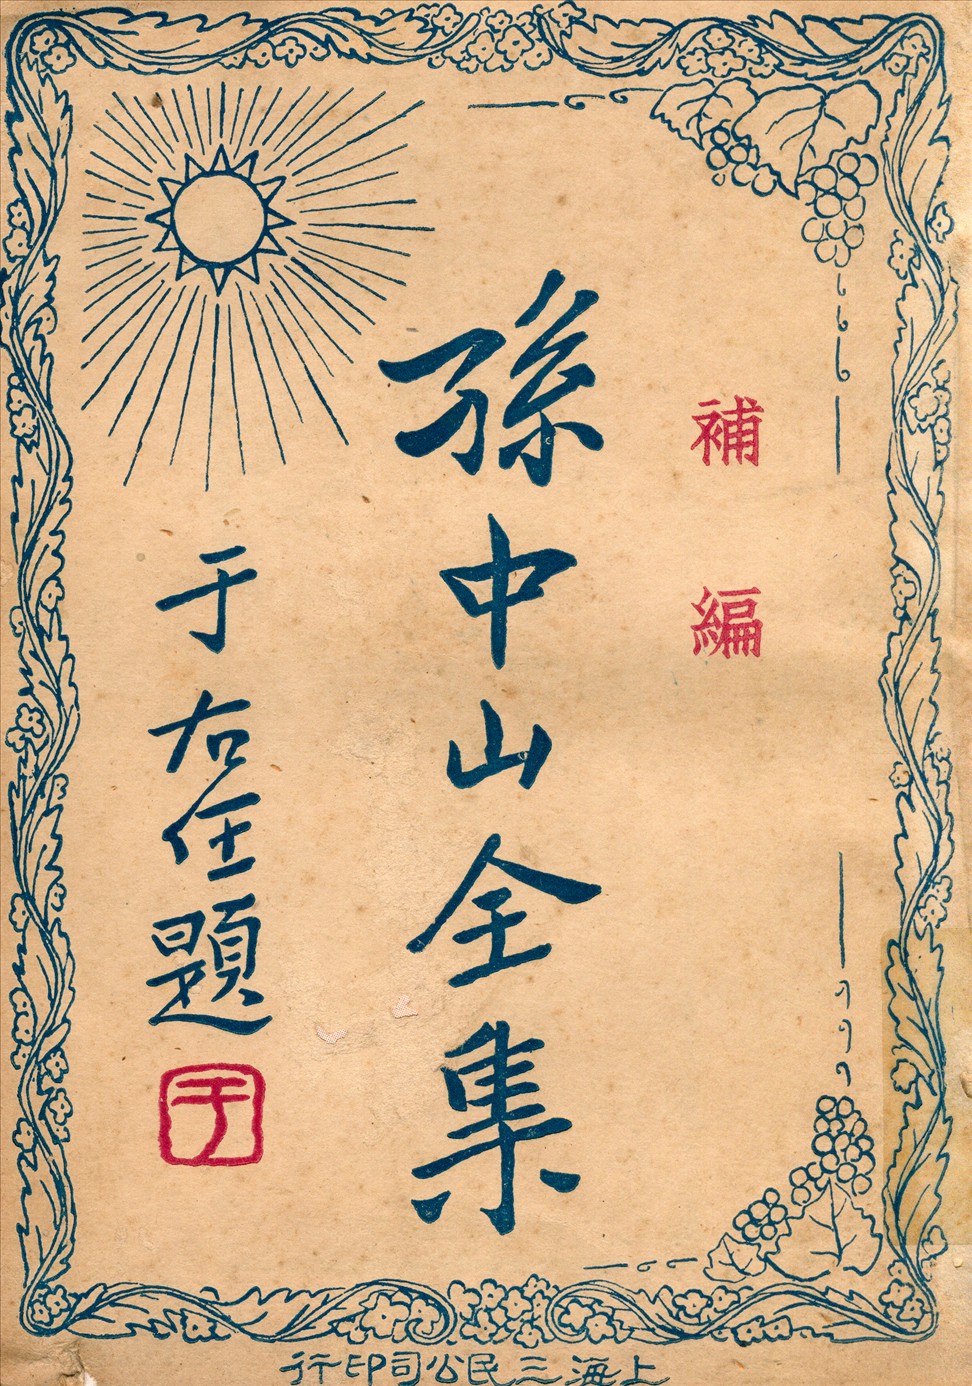 補編
孫中山全集
于右任題
于
上海三民公司印行